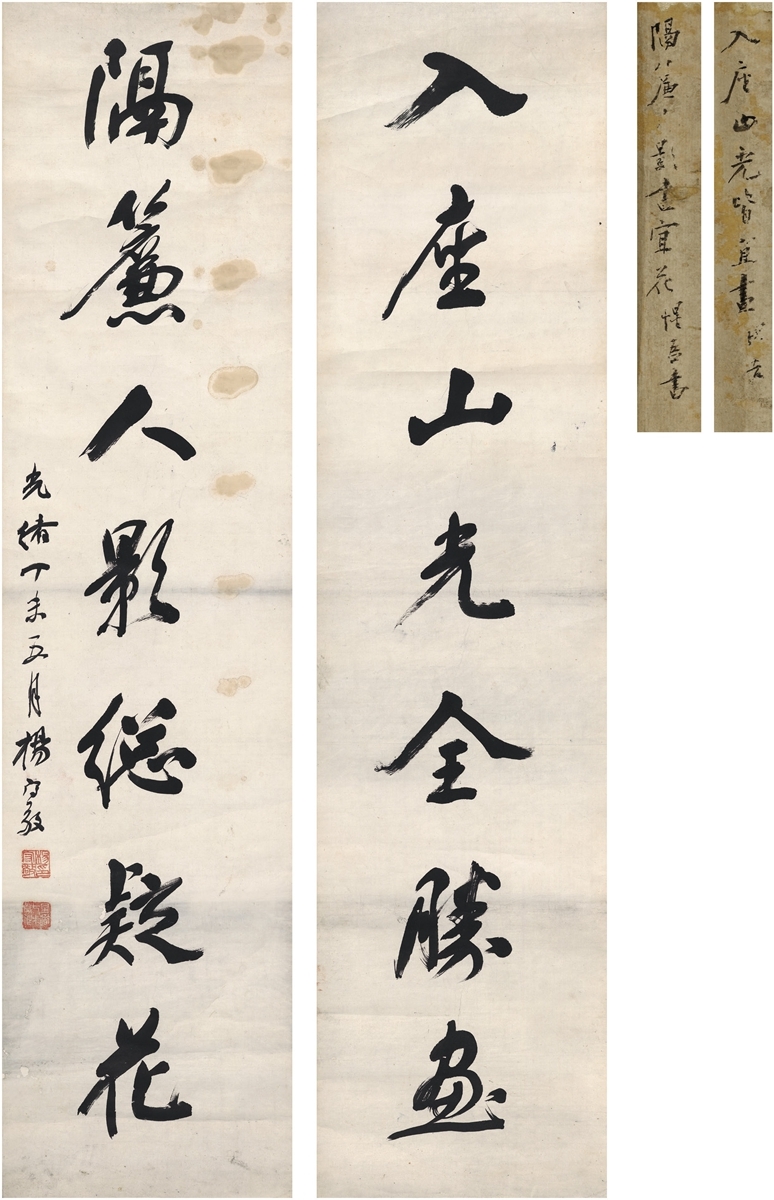 入座山光全勝畫
隔簾人影總疑花
光緒丁未五月楊守敬
入座山光皆宜畫
隔簾人影畫宜花惺吾書